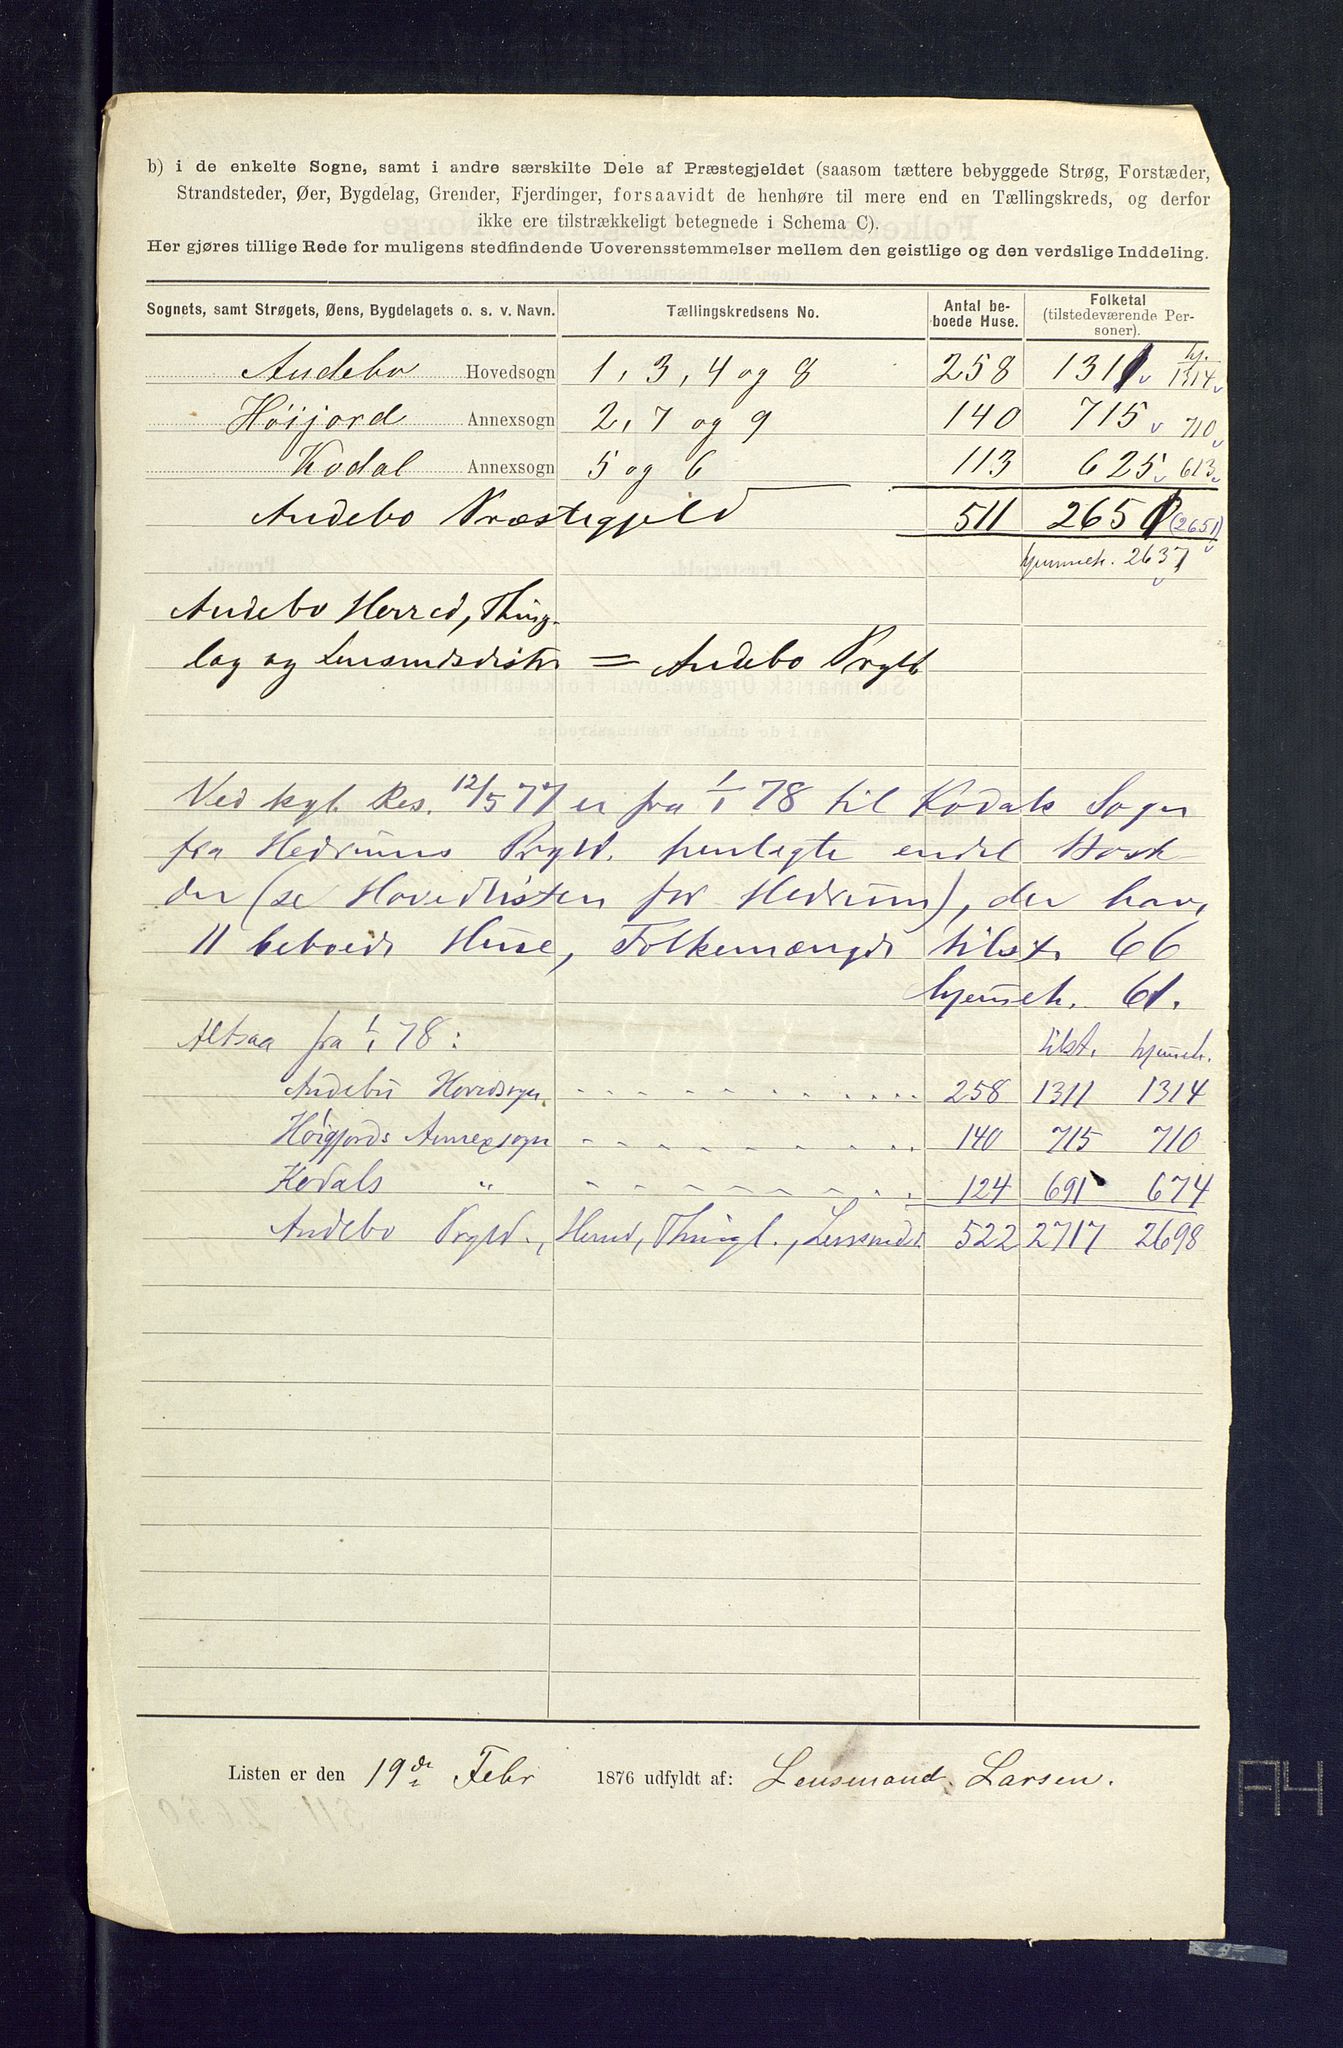 b) i de enkelte Sogne, samt i andre særskilte Dele af Præstegjeldet (saasom tættere bebyggede Strøg, Forstæder,
Strandsteder, Øer, Bygdelag, Grender, Fjerdinger, forsaavidt de henhøre til mere end en Tællingskreds, og derfor
ikke ere tilstrækkeligt betegnede i Schema C).
Her gjøres tillige Rede for muligens stedfindende Uoverensstemmelser mellem den geistlige og den verdslige Inddeling.
Sognets, samt Strøgets, Øens, Bygdelagets o. s. v. Navn. Tællingskredsens No. Antal beboede Huse. Folketal (tilstedeværende Personer).
Andebo Hovedsogn 1, 3, 4 og 8 258 1311 hj. 1314
Høijord Annexsogn 2, 7 og 9 140 715 710
Kodal Annexsogn 5 og 6 113 625 613
Andebo Præstegjeld 511 2651 (2651)
hjemmeh. 2637
Andebo Herred, Thing-
lag og Lensmdsdistr = Andebo Prgld
Ved kgl. Res. 12/5 77 er fra 1/1 78 til Kodals Sogn
fra Hedrums Prgld. henlagte endel
(se Hovedlisten for Hedrum), der hav.
11 beboede Huse, Folkemængde tilst. 66
hjemmeh. 61.
Altsaa fra 1/1 78: tilst. hjemmeh.
Andebu Hovedsogn 258 1311 1314
Høigjords Annexsogn 140 715 710
Kodals " 124 691 674
Andebo Prgld., Herred, Thingl., Lensmdsd. 522 2717 2698
Listen er den 19de Febr 1876 udfyldt af: Lensmand Larsen.
A4